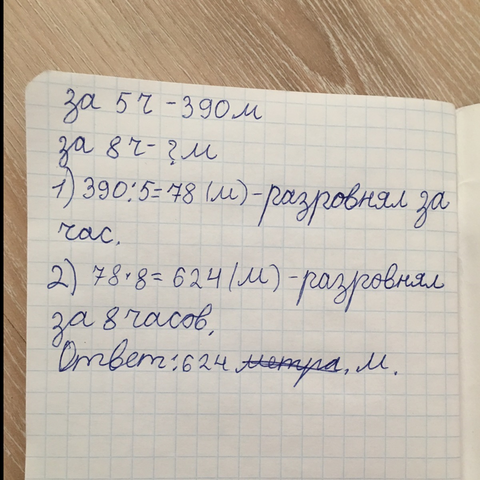 за 5ч - 390м
за 8ч - ? м
1) 390:5=78 (м) - разровнял за
час.
2) 78·8= 624 (м) - разровнял
за 8 часов.
Ответ: 624 метра. м.